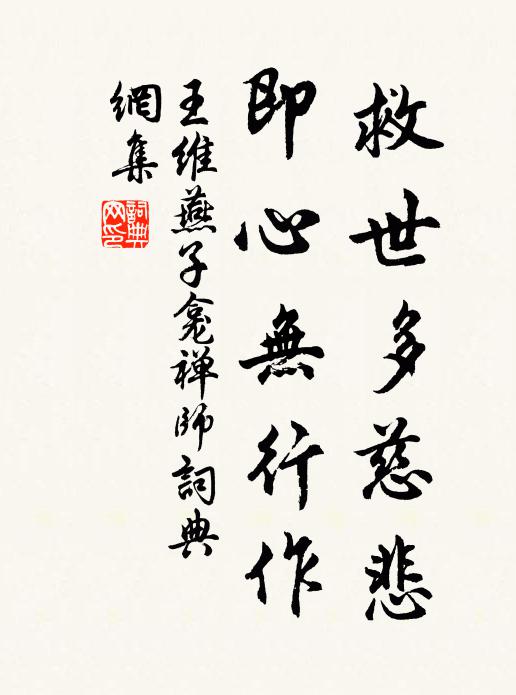 救世多慈悲
即心無行作
王維燕子龕禅師詞典
網集
詞典
网印